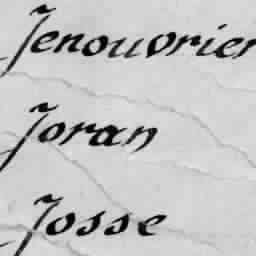 Jenouvrier
Joran
Josse